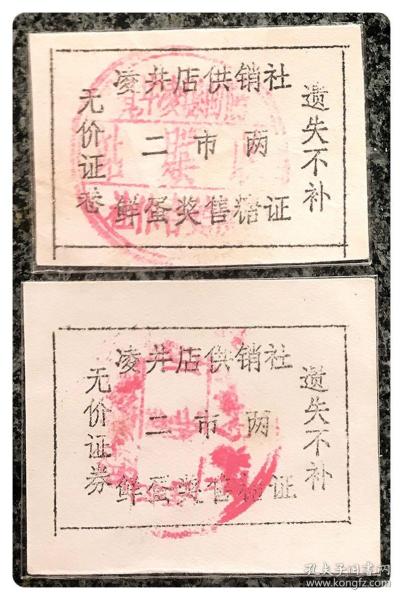 无价证卷
凌井店供销社
二市两
鲜蛋奖售糖证
遗失不补
无价证券
凌井店供销社
二市两
鲜蛋奖售糖证
遗失不补
孔夫子旧书网
www.kongfz.com